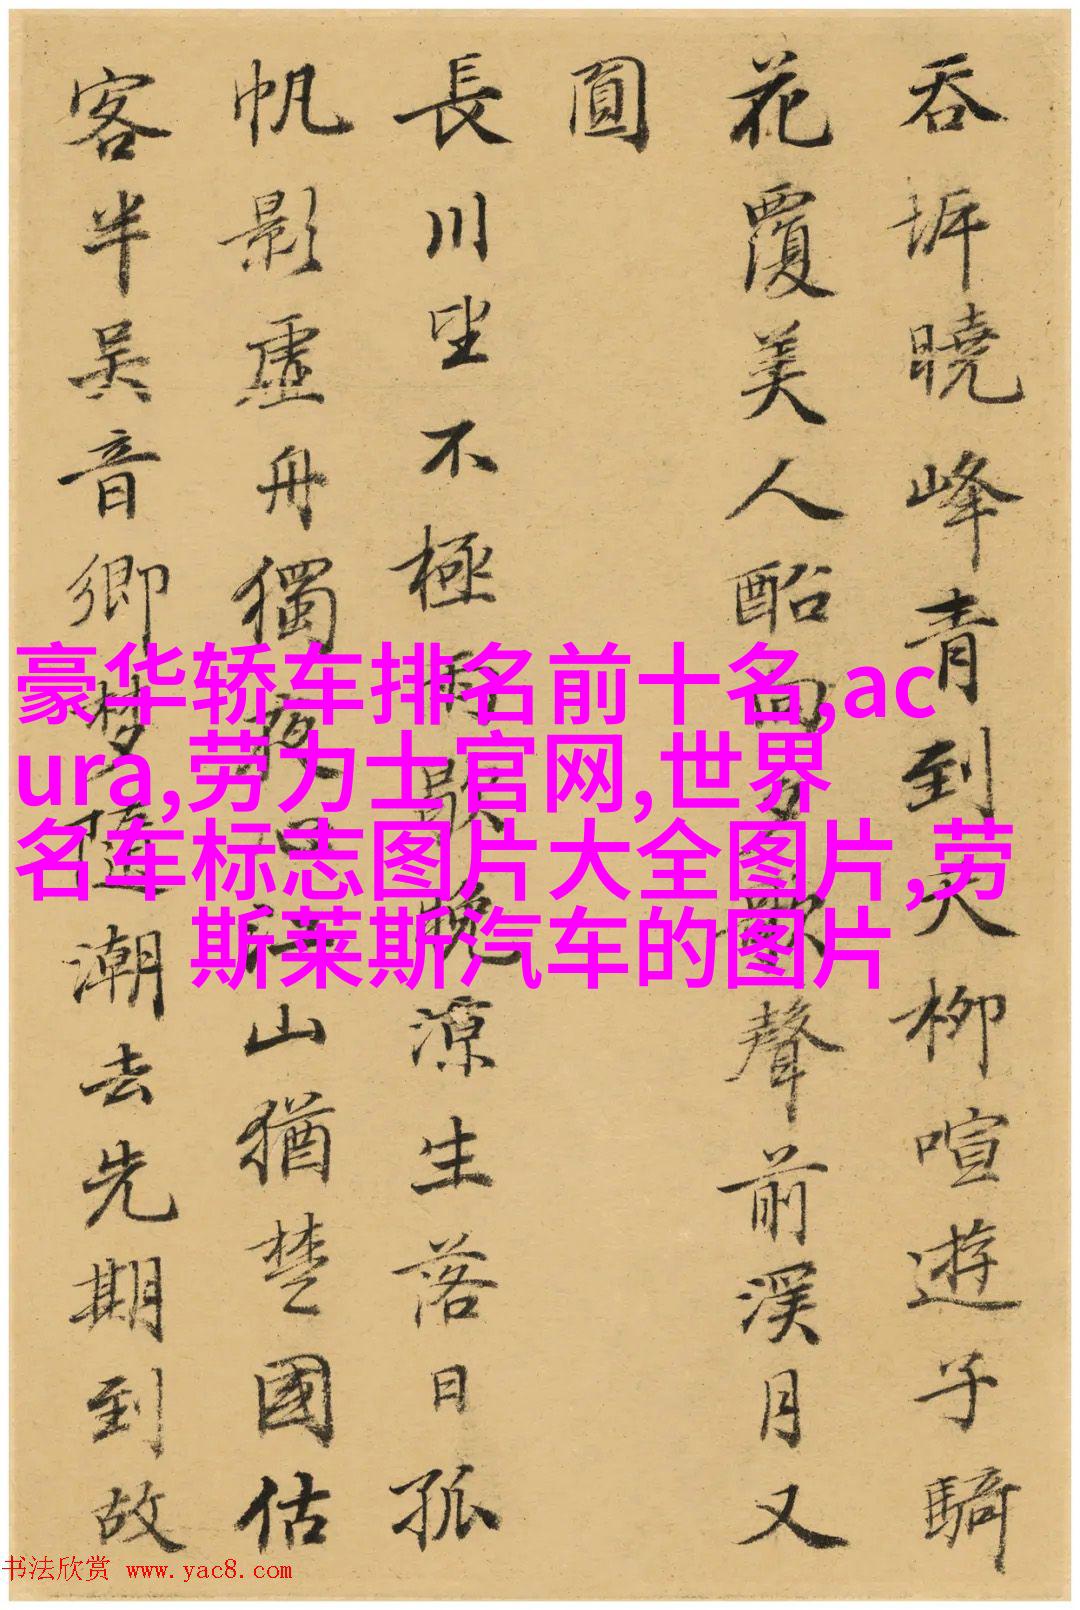 吞坼曉峰青到天柳喧遊子騎
花覆美人聲前溪月又
圓
長川坐不極雨歇晚涼生落日孤
帆影虛舟獨夜江山猶楚國估
客半吳音鄉夢隨潮去先期到故
豪华轿车排名前十名,ac
ura,劳力士官网,世界
名车标志图片大全图片,劳
斯莱斯汽车的图片
书法欣赏 www.yac8.com